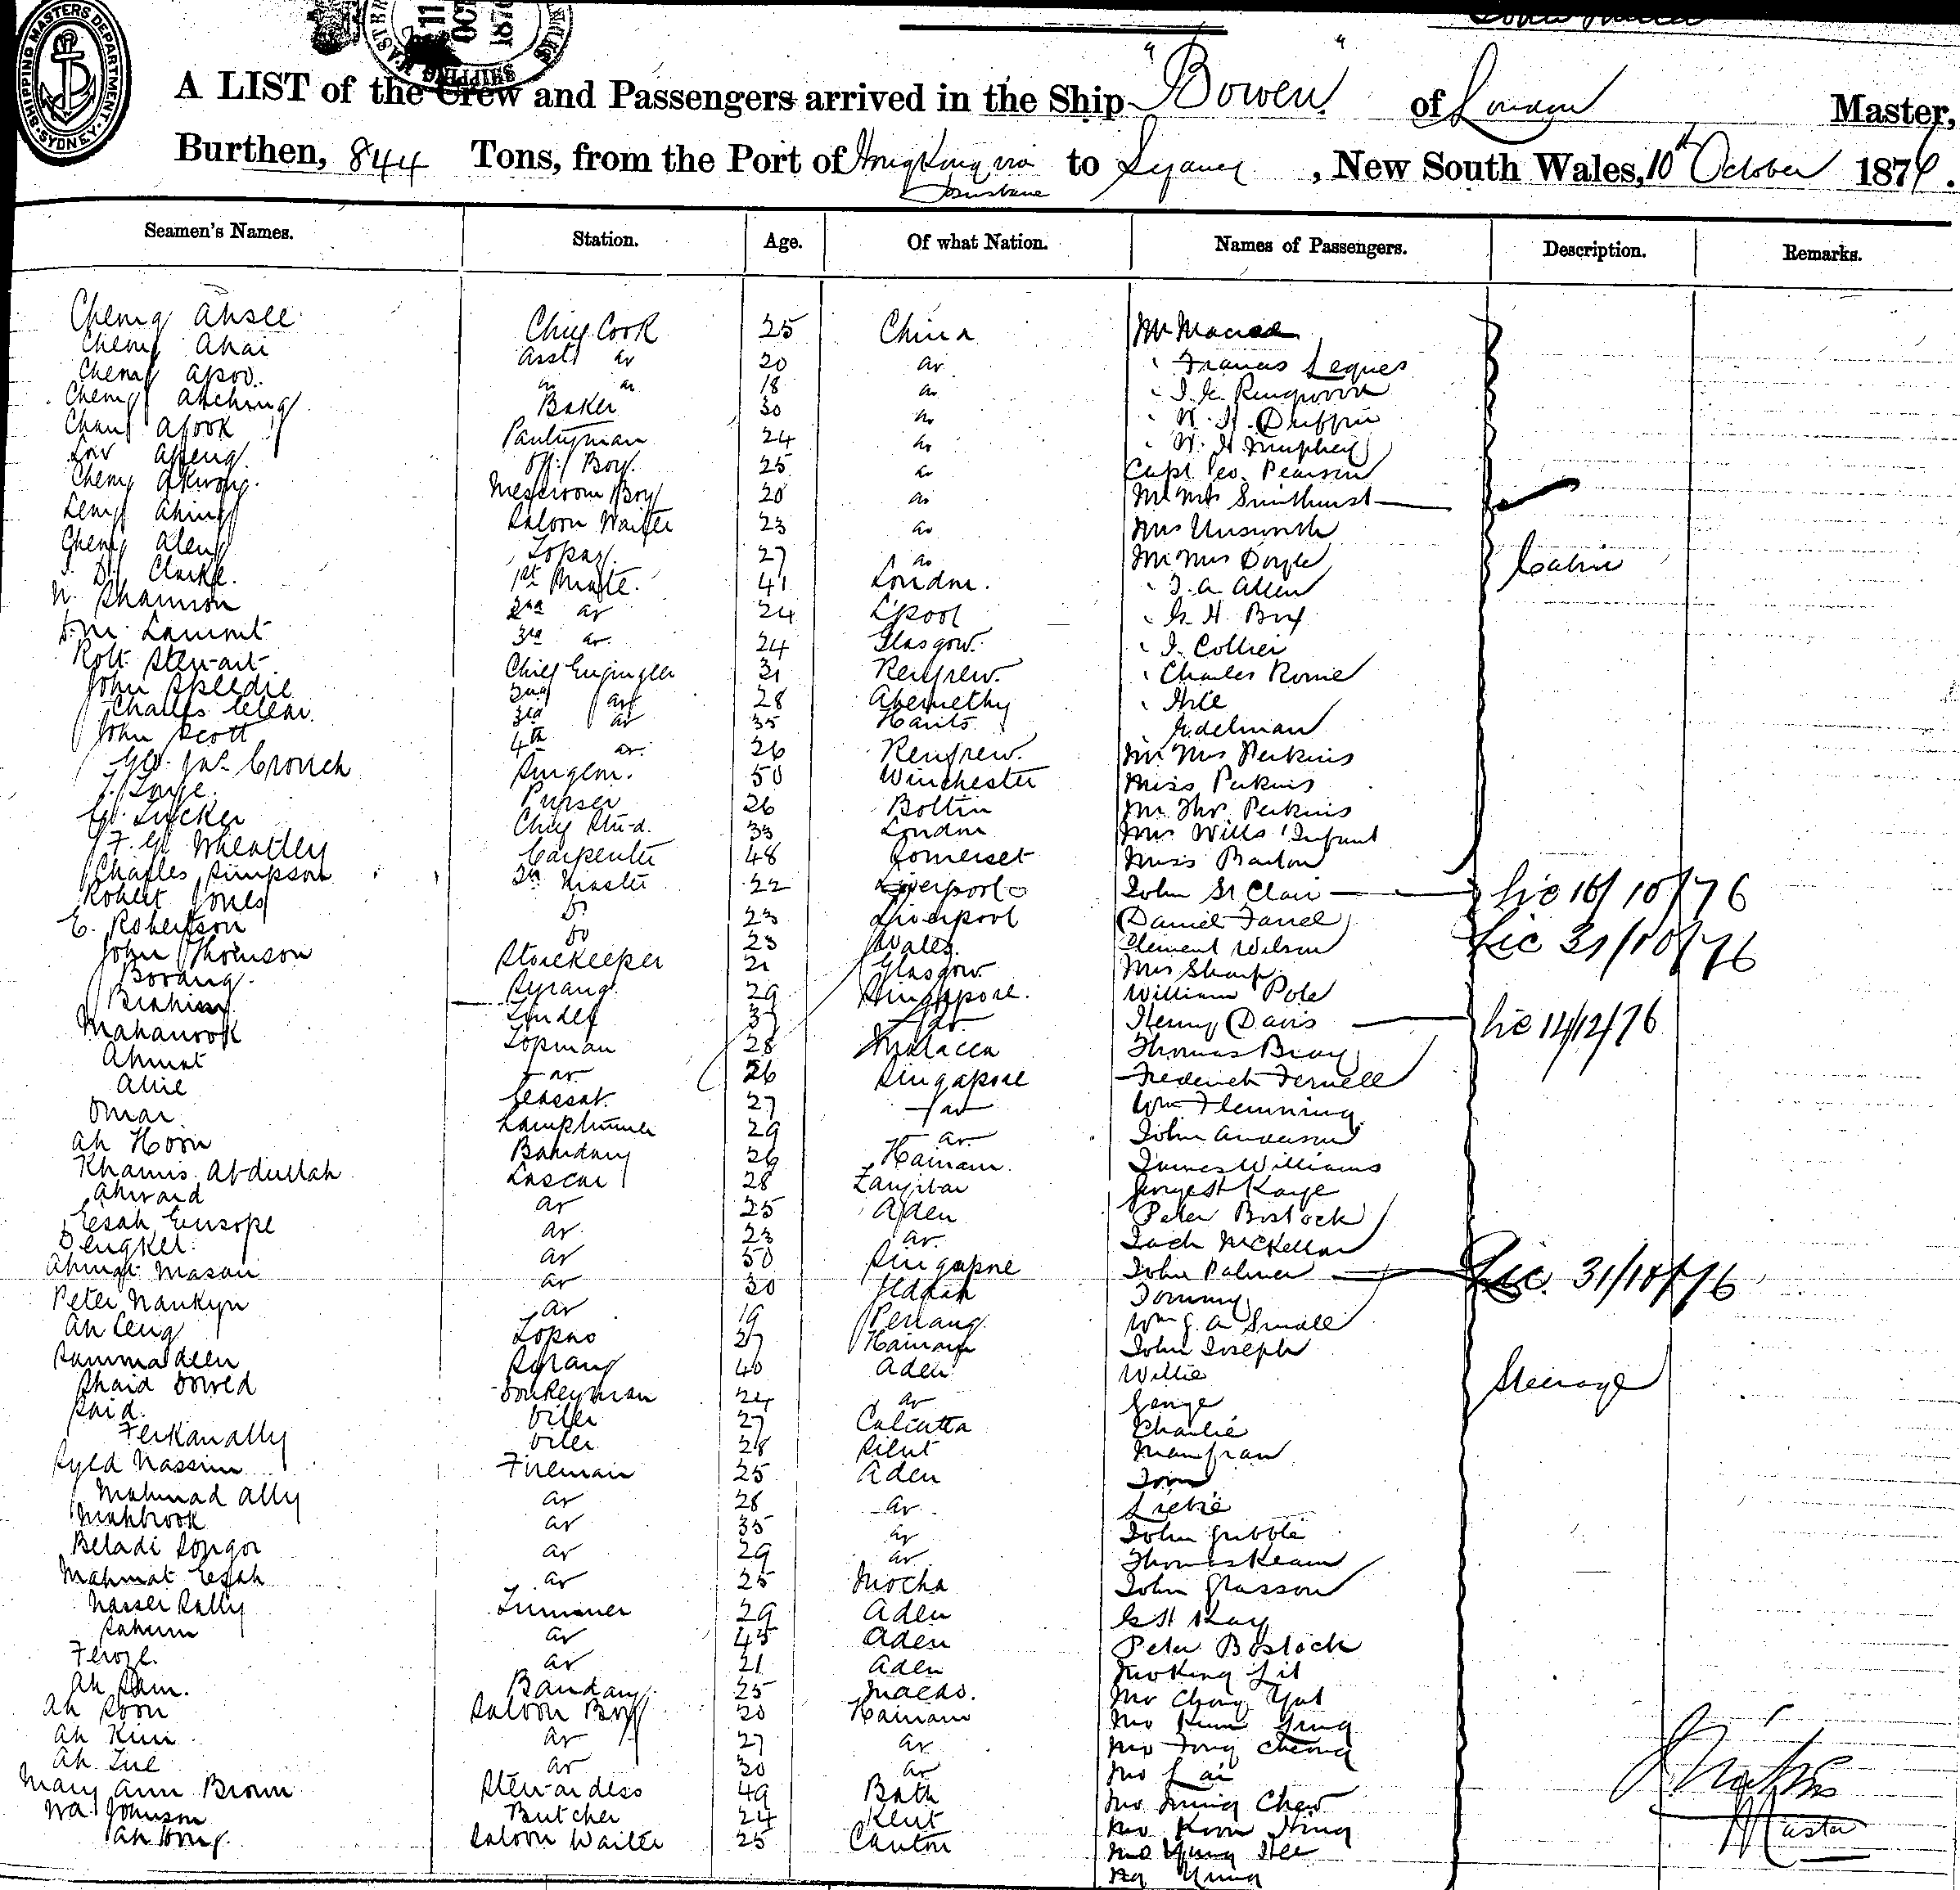 SHIPPING MASTERS DEPARTMENT. SYDNEY.
11 OCT 1876
A LIST of the Crew and Passengers arrived in the Ship "Bowen" of London Master,
Burthen, 844 Tons, from the Port of Hong Kong via Brisbane to Sydney, New South Wales, 10th October 1876.
Seamen's Names. Station. Age. Of what Nation. Names of Passengers. Description. Remarks.
Cheng Ahsee Chief Cook 25 China Mr Macrea
Cheng Ahai Asst do 20 do " Francis Leques
Cheng Apoo 18 do " Ringwood
Cheng Ahching Baker 30 do " W. H. Duffin
Chang Afook Pantryman 24 do " W. H. Murphey
Low Apeng Off. Boy 25 do Capt Geo. Pearson
Cheng Akwong Messroom Boy 20 do Mr Mrs Smithurst
Leng Ahing Saloon Waiter 23 do Mrs Unsworth
Cheng Aleng Topaz 27 do Mr Mrs Doyle Cabin
J. D. Clarke 1st Mate 41 London " J. A. Allen
N. Shannon 2nd do 24 L'pool " G. H. Bry
Lamont 3rd do 24 Glasgow " J. Collier
Robt Stewart Chief Engineer 31 Renfrew " Charles Rome
John Speedie 2nd do 28 Abernethy " Hill
Charles Clear 3rd do 35 Hants Edelman
John Scott 4th do 26 Renfrew Mr Mrs Perkins
Geo. Jas. Crouch Surgeon 50 Winchester Miss Perkins
Purser 26 Bolton Mr Thos. Perkins
Tucker Chief Stwd. 33 London Mrs Wills 1 Infant
F. G. Wheatley Carpenter 48 Somerset Miss Barton
Charles Simpson Qr Master 22 Liverpool John St Clair Lic 16/10/76
Robert Jones Do 23 Liverpool Daniel Farrel
E. Robertson Do 23 Wales Clement Wilson Lic 31/10/76
John Thomson Storekeeper 21 Glasgow Mrs Sharp
Borang Syrang 29 Singapore William Pole
Brahim Tindel 37 do Henry Davis Lic 14/12/76
Mahanrook Topman 28 Malacca Thomas Bray
Ahmat do 26 Singapore Frederick Fernell
Alie Cassab 27 do Wm Flemming
Omar Lamptrimmer 29 do John Anderson
Ah Hoon Bandary 26 Hainam James Williams
Khamis Abdullah Lascar 28 Zanzibar George H Kaye
Ahwaid do 25 Aden Peter Bostock
Eesah Eusope do 23 do Jack McKellar
Dengkel do 50 Singapore John Palmer Lic. 31/10/76
Ahmat Masau do 30 Jeddah Tommy
Peter Nankyn do 19 Penang Wm G. A Small
Ah Ceng Topas 27 Hainam John Joseph
Sammadeen Syrang 40 Aden Willie Steerage
Shaid Dowed Donkeyman 24 do George
Said Oiler 27 Calcutta Charlie
Ferkanally Oiler 28 Silut Manfran
Syed Nassim Fireman 25 Aden Tom
Mahmad Ally do 28 do
Mahbrook do 35 do John Gribble
Beladi Songor do 29 do Thomas Keam
Mahmat Eesah do 25 Mocha John Glasson
Nasser Sally Trimmer 29 Aden G H Kay
Sahum do 45 Aden Peter Bostock
Feroze do 21 Aden Mo King Lit
Ah Sam Bandary 25 Macao Mo Chong Yut
Ah Soon Saloon Boy 20 Hainam Mo Kum Ying
Ah Kim do 27 do Mo Fong Cheong
Ah Tue do 30 do Mo Lai
Mary Ann Brown Stewardess 49 Bath Mo Ming Chew
Wa Johnson Butcher 24 Kent Mo Koon Hing
Ah Wong Saloon Waiter 25 Canton Mo Yung Hee
Ng Yung
Master